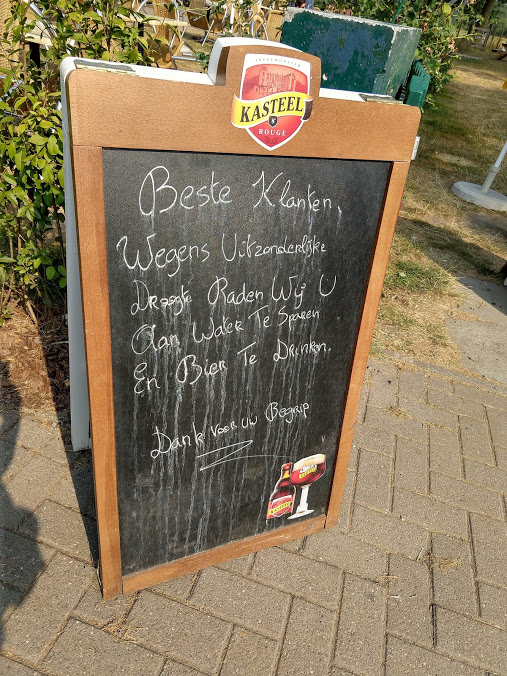 INGELMUNSTER
KASTEEL
ROUGE
Beste Klanten,
Wegens Uitzonderlijke
Droogte Raden Wij U
Aan Water Te Sparen
En Bier Te Drinken.
Dank voor uw Begrip